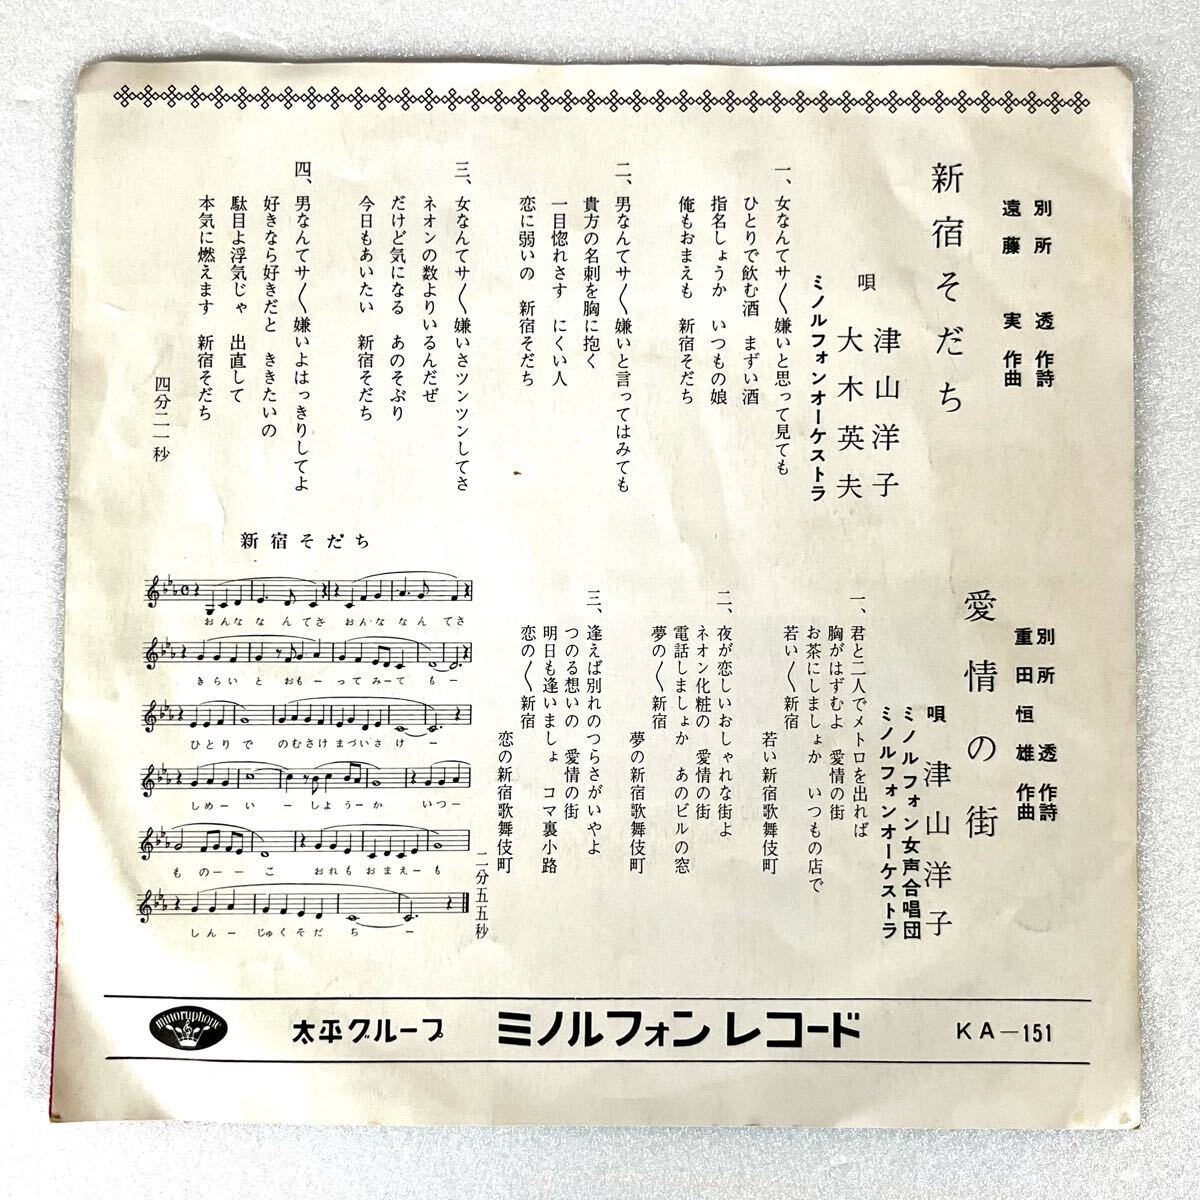 新宿そだち
別所 透 作詩
遠藤 実 作曲
唄 津山洋子
大木英夫
ミノルフォンオーケストラ
一、女なんてサ〳〵嫌いと思って見ても
ひとりで飲む酒 まずい酒
指名しょうか いつもの娘
俺もおまえも 新宿そだち
二、男なんてサ〳〵嫌いと言ってはみても
貴方の名刺を胸に抱く
一目惚れさす にくい人
恋に弱いの 新宿そだち
三、女なんてサ〳〵嫌いさツンツンしてさ
ネオンの数よりいるんだぜ
だけど気になる あのそぶり
今日もあいたい 新宿そだち
四、男なんてサ〳〵嫌いよはっきりしてよ
好きなら好きだと ききたいの
駄目よ浮気じゃ 出直して
本気に燃えます 新宿そだち
四分二一秒
愛情の街
別所 透 作詩
重田恒雄 作曲
唄 津山洋子
ミノルフォン女声合唱団
ミノルフォンオーケストラ
一、君と二人でメトロを出れば
胸がはずむよ 愛情の街
お茶にしましょか いつもの店で
若い〳〵新宿
若い新宿歌舞伎町
二、夜が恋しいおしゃれな街よ
ネオン化粧の 愛情の街
電話しましょか あのビルの窓
夢の〳〵新宿
夢の新宿歌舞伎町
三、逢えば別れのつらさがいやよ
つのる想いの 愛情の街
明日も逢いましょ コマ裏小路
恋の〳〵新宿
恋の新宿歌舞伎町
二分五五秒
新宿そだち
おんな なんてさ おんな なんてさ
きらいと おもーってみーても もー
ひとりで のむさけまづいさけー
しめーいーしようーか いつー
ものーーこ おれもおまえーも
しんーじゅくそだちー
minoryphone
太平グループ ミノルフォンレコード KA-151